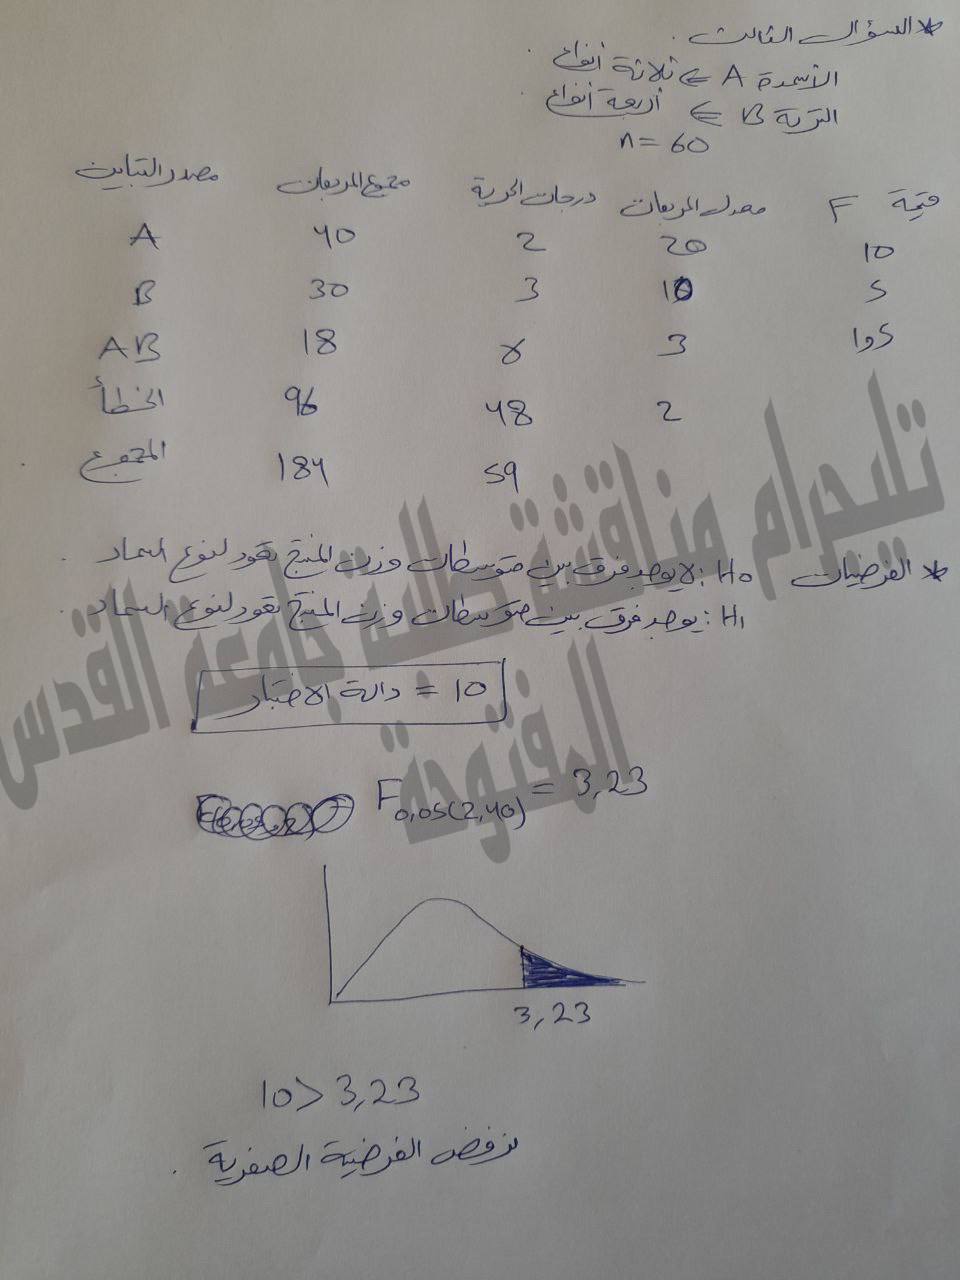 * السؤال الثالث .
الأسمدة A ⇐ ثلاثة أنواع .
التربة B ⇐ أربعة أنواع .
n = 60
مصدر التباين مجموع المربعات درجات الحرية معدل المربعات قيمة F
A 40 2 20 10
B 30 3 10 5
AB 18 6 3 1,5
الخطأ 96 48 2
المجموع 184 59
* الفرضيات H0 : لا يوجد فرق بين متوسطات وزن المنتج تعود لنوع السماد .
H1 : يوجد فرق بين متوسطات وزن المنتج تعود لنوع السماد .
دالة الاختبار = 10
F0,05(2,40) = 3,23
3,23
10 > 3,23
نرفض الفرضية الصفرية .
تليجرام مناقشة طلبة جامعة القدس
المفتوحة